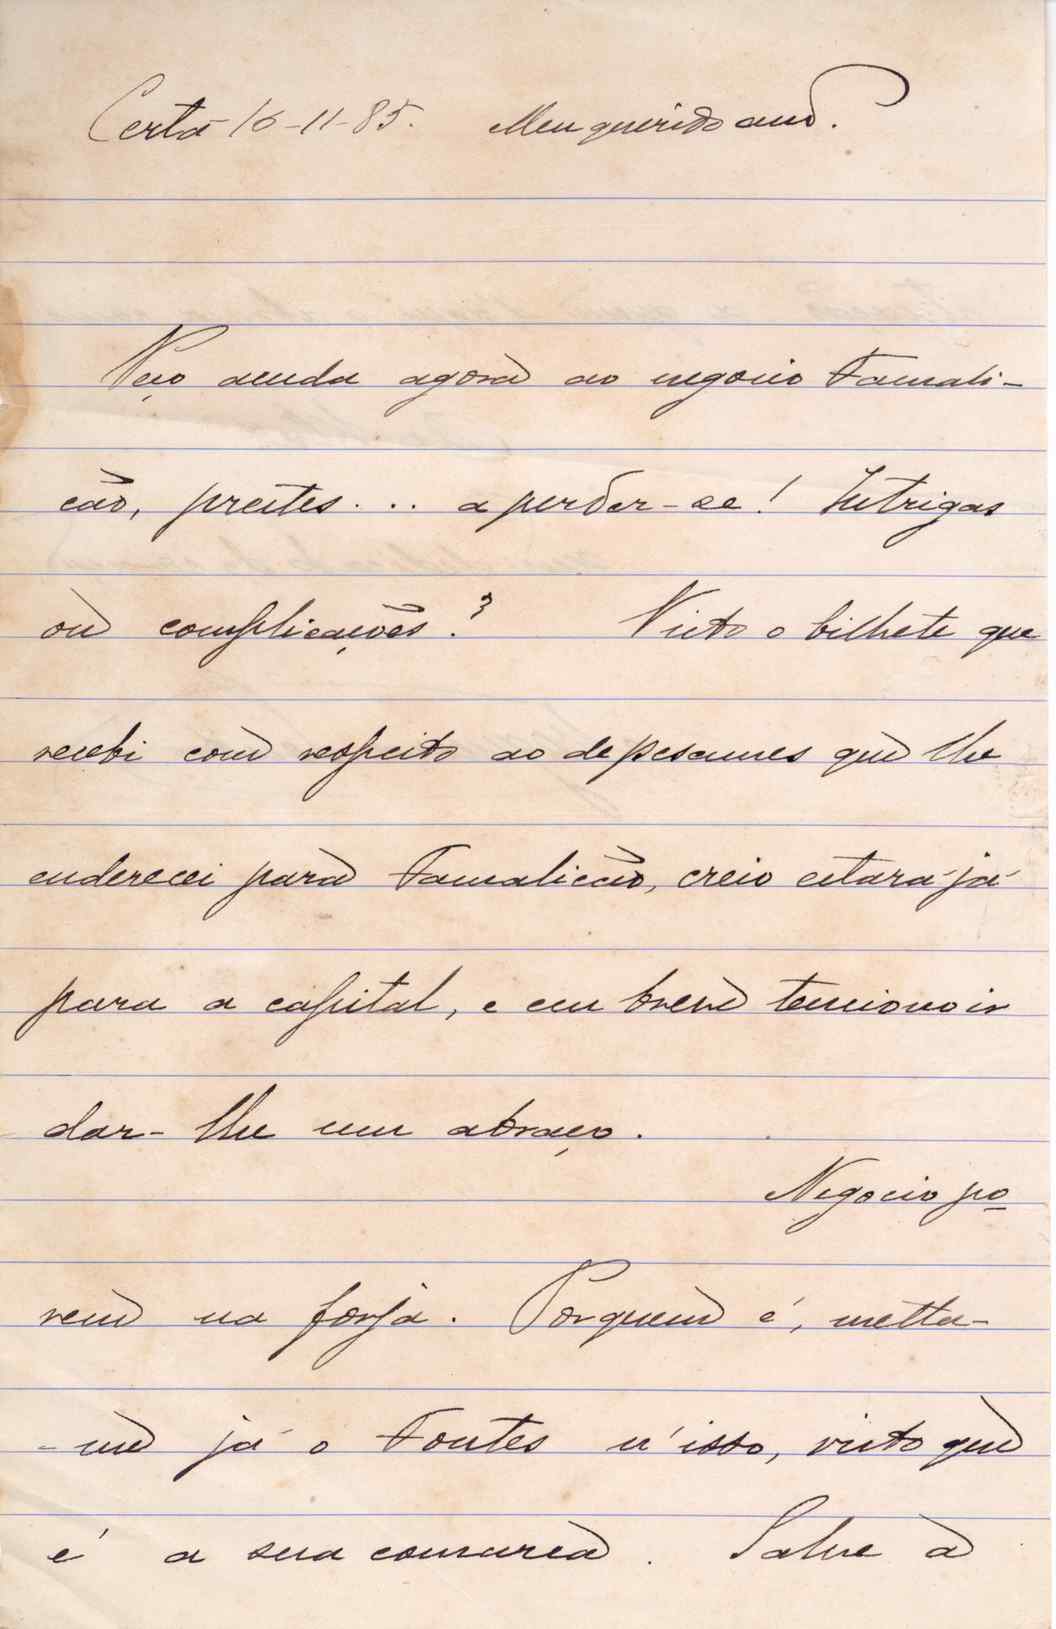 Certã 16-11-85. Meu querido am.º
Vejo ainda agora ao negocio Famali-
cão, prestes... a perder-se! Intrigas
ou complicações? Visto o bilhete que
recebi com respeito ao de pesames que lhe
enderecei para Famalicão, creio estará já
para a capital, e em breve tenciono ir
dar-lhe um abraço.
Negocio po-
rem na forja. Por quem é, metta-
-me já o Fontes n'isso, visto que
é a sua comarca. Salve a